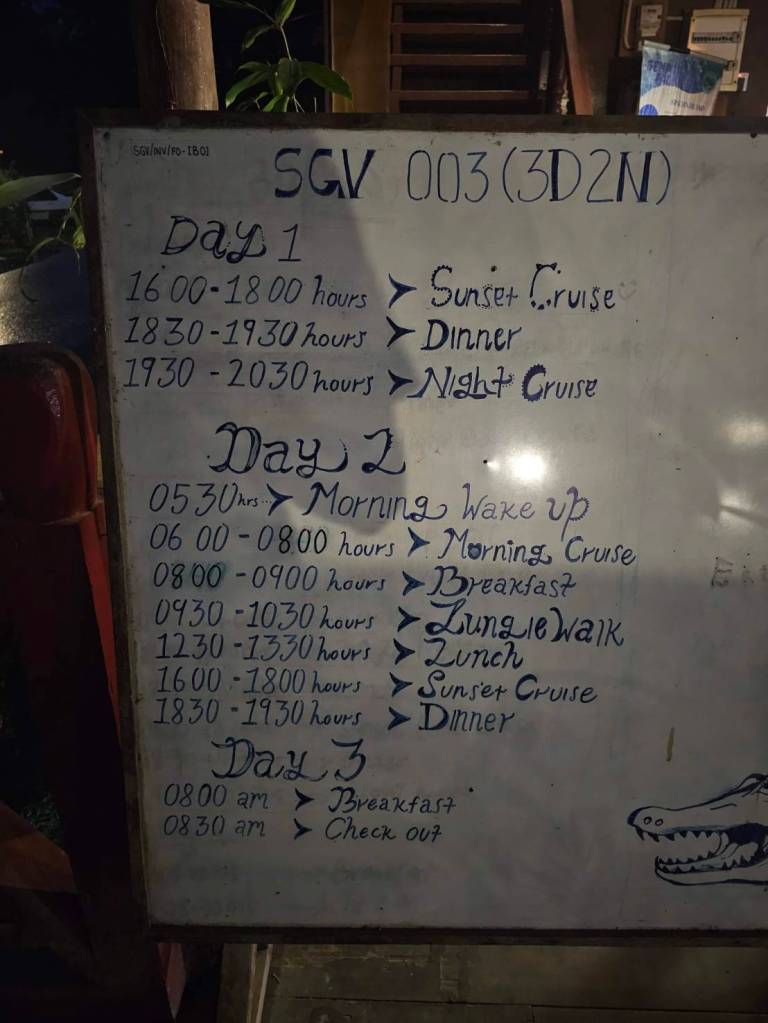 SGV/INV/FO-IB01
SGV 003 (3D2N)
Day 1
1600-1800 hours ➤ Sunset Cruise
1830-1930 hours ➤ Dinner
1930-2030 hours ➤ Night Cruise
Day 2
0530 hrs ➤ Morning Wake up
0600-0800 hours ➤ Morning Cruise
0800-0900 hours ➤ Breakfast
0930-1030 hours ➤ Jungle Walk
1230-1330 hours ➤ Lunch
1600-1800 hours ➤ Sunset Cruise
1830-1930 hours ➤ Dinner
Day 3
0800 am ➤ Breakfast
0830 am ➤ Check out